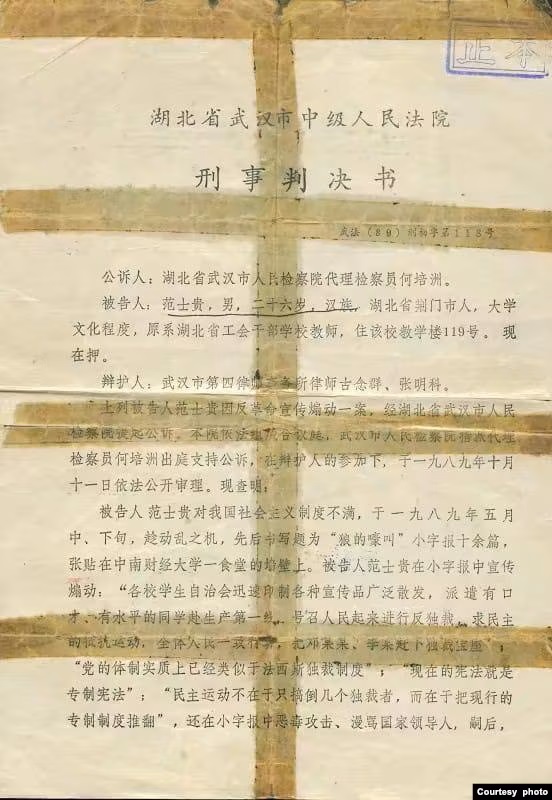 正本
湖北省武汉市中级人民法院
刑事判决书
武法（89）刑初字第118号
公诉人：湖北省武汉市人民检察院代理检察员何培洲。
被告人：范士贵，男，二十六岁，汉族，湖北省荆门市人，大学
文化程度，原系湖北省工会干部学校教师，住该校教学楼119号。现
在押。
辩护人：武汉市第四律师事务所律师古念群、张明科。
上列被告人范士贵因反革命宣传煽动一案，经湖北省武汉市人民
检察院提起公诉。本院依法组成合议庭，武汉市人民检察院指派代理
检察员何培洲出庭支持公诉，在辩护人的参加下，于一九八九年十月
十一日依法公开审理。现查明：
被告人范士贵对我国社会主义制度不满，于一九八九年五月
中、下旬，趁动乱之机，先后书写题为“狼的嚎叫”小字报十余篇，
张贴在中南财经大学一食堂的墙壁上。被告人范士贵在小字报中宣传
煽动：“各校学生自治会迅速印制各种宣传品广泛散发，派遣有口
才、有水平的同学赴生产第一线，号召人民起来进行反独裁、求民主
的抵抗运动，全体人民一致行动，把邓某某、李某赶下独裁宝座”；
“党的体制实质上已经类似于法西斯独裁制度”；“现在的宪法就是
专制宪法”；“民主运动不在于只搞倒几个独裁者，而在于把现行的
专制制度推翻”，还在小字报中恶毒攻击、漫骂国家领导人，嗣后，
Courtesy photo